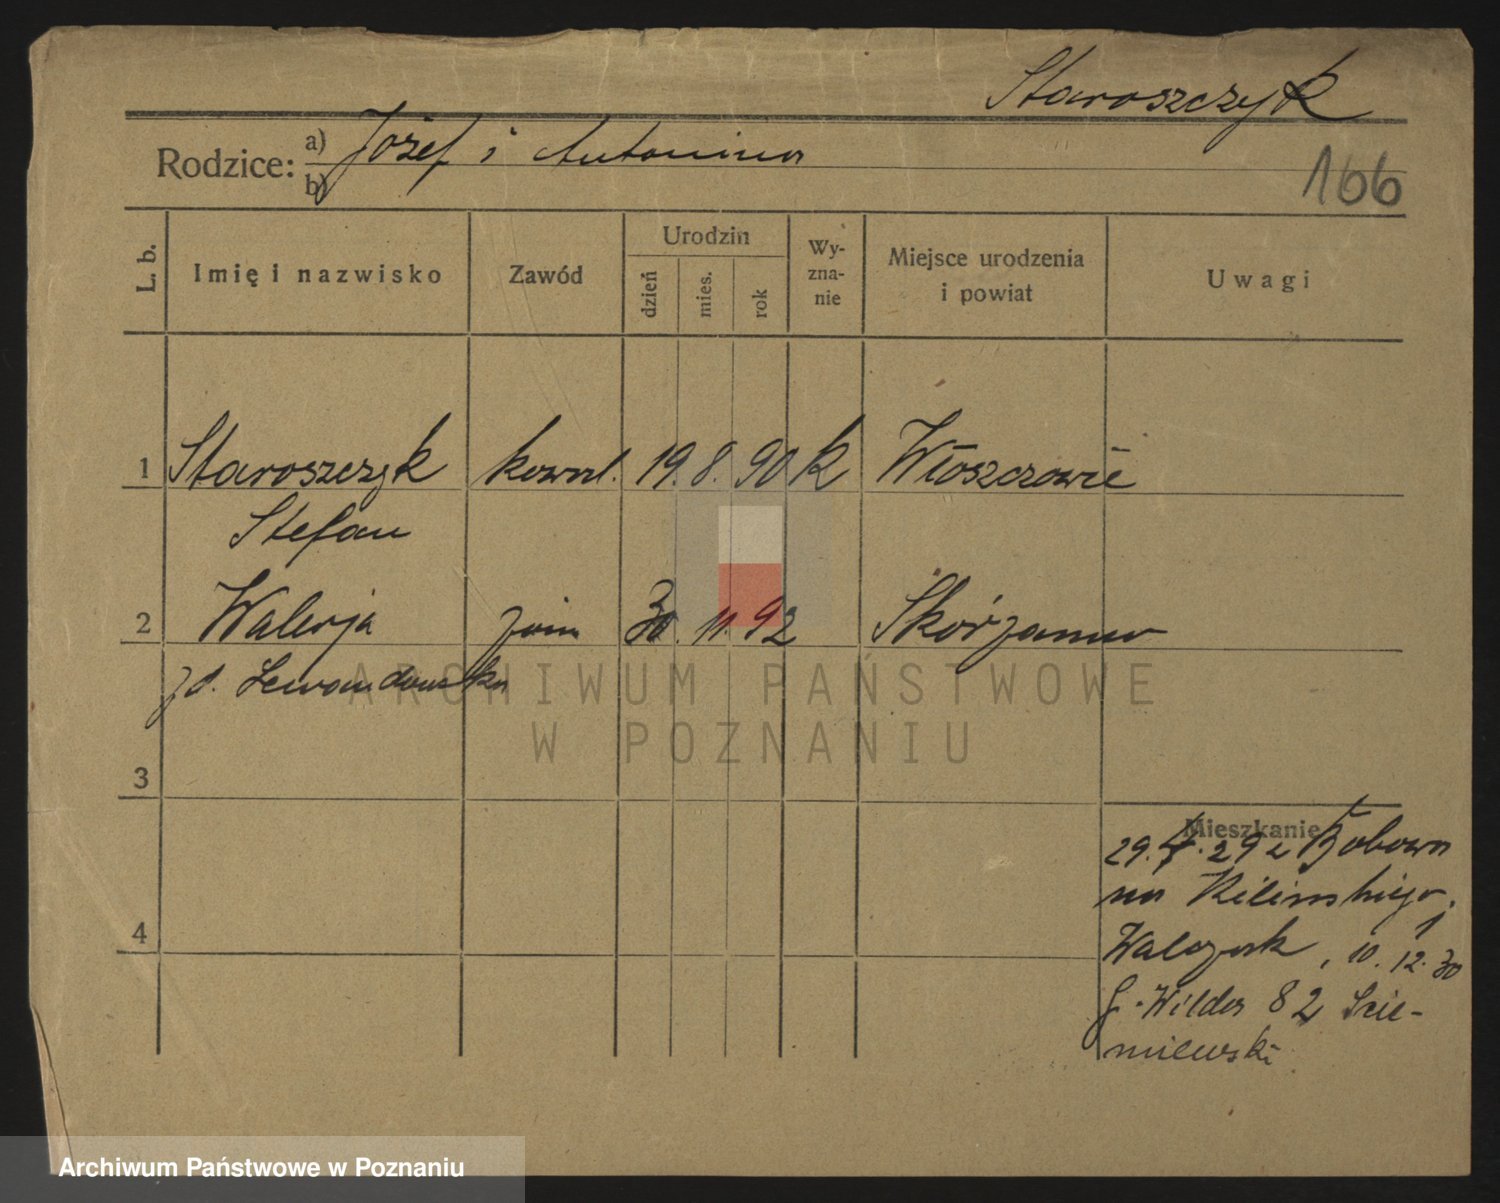 Staroszczyk
Rodzice: a) Józef i Antonina
b)
166
L. b. Imię i nazwisko Zawód Urodzin dzień mies. rok Wyznanie Miejsce urodzenia i powiat Uwagi
1 Staroszczyk kowal. 19. 8. 90 K Włoszczowie
Stefan
2 Walerja żona 30. 11. 92 Skórzewo
zd. Lewandowska
ARCHIWUM PAŃSTWOWE
W POZNANIU
3
Mieszkanie
29. 4. 29 z Bobowa
na Kilińskiego,
4
Walczak, 10. 12. 30
G. Wilda 82 Szie-
milewski
Archiwum Państwowe w Poznaniu